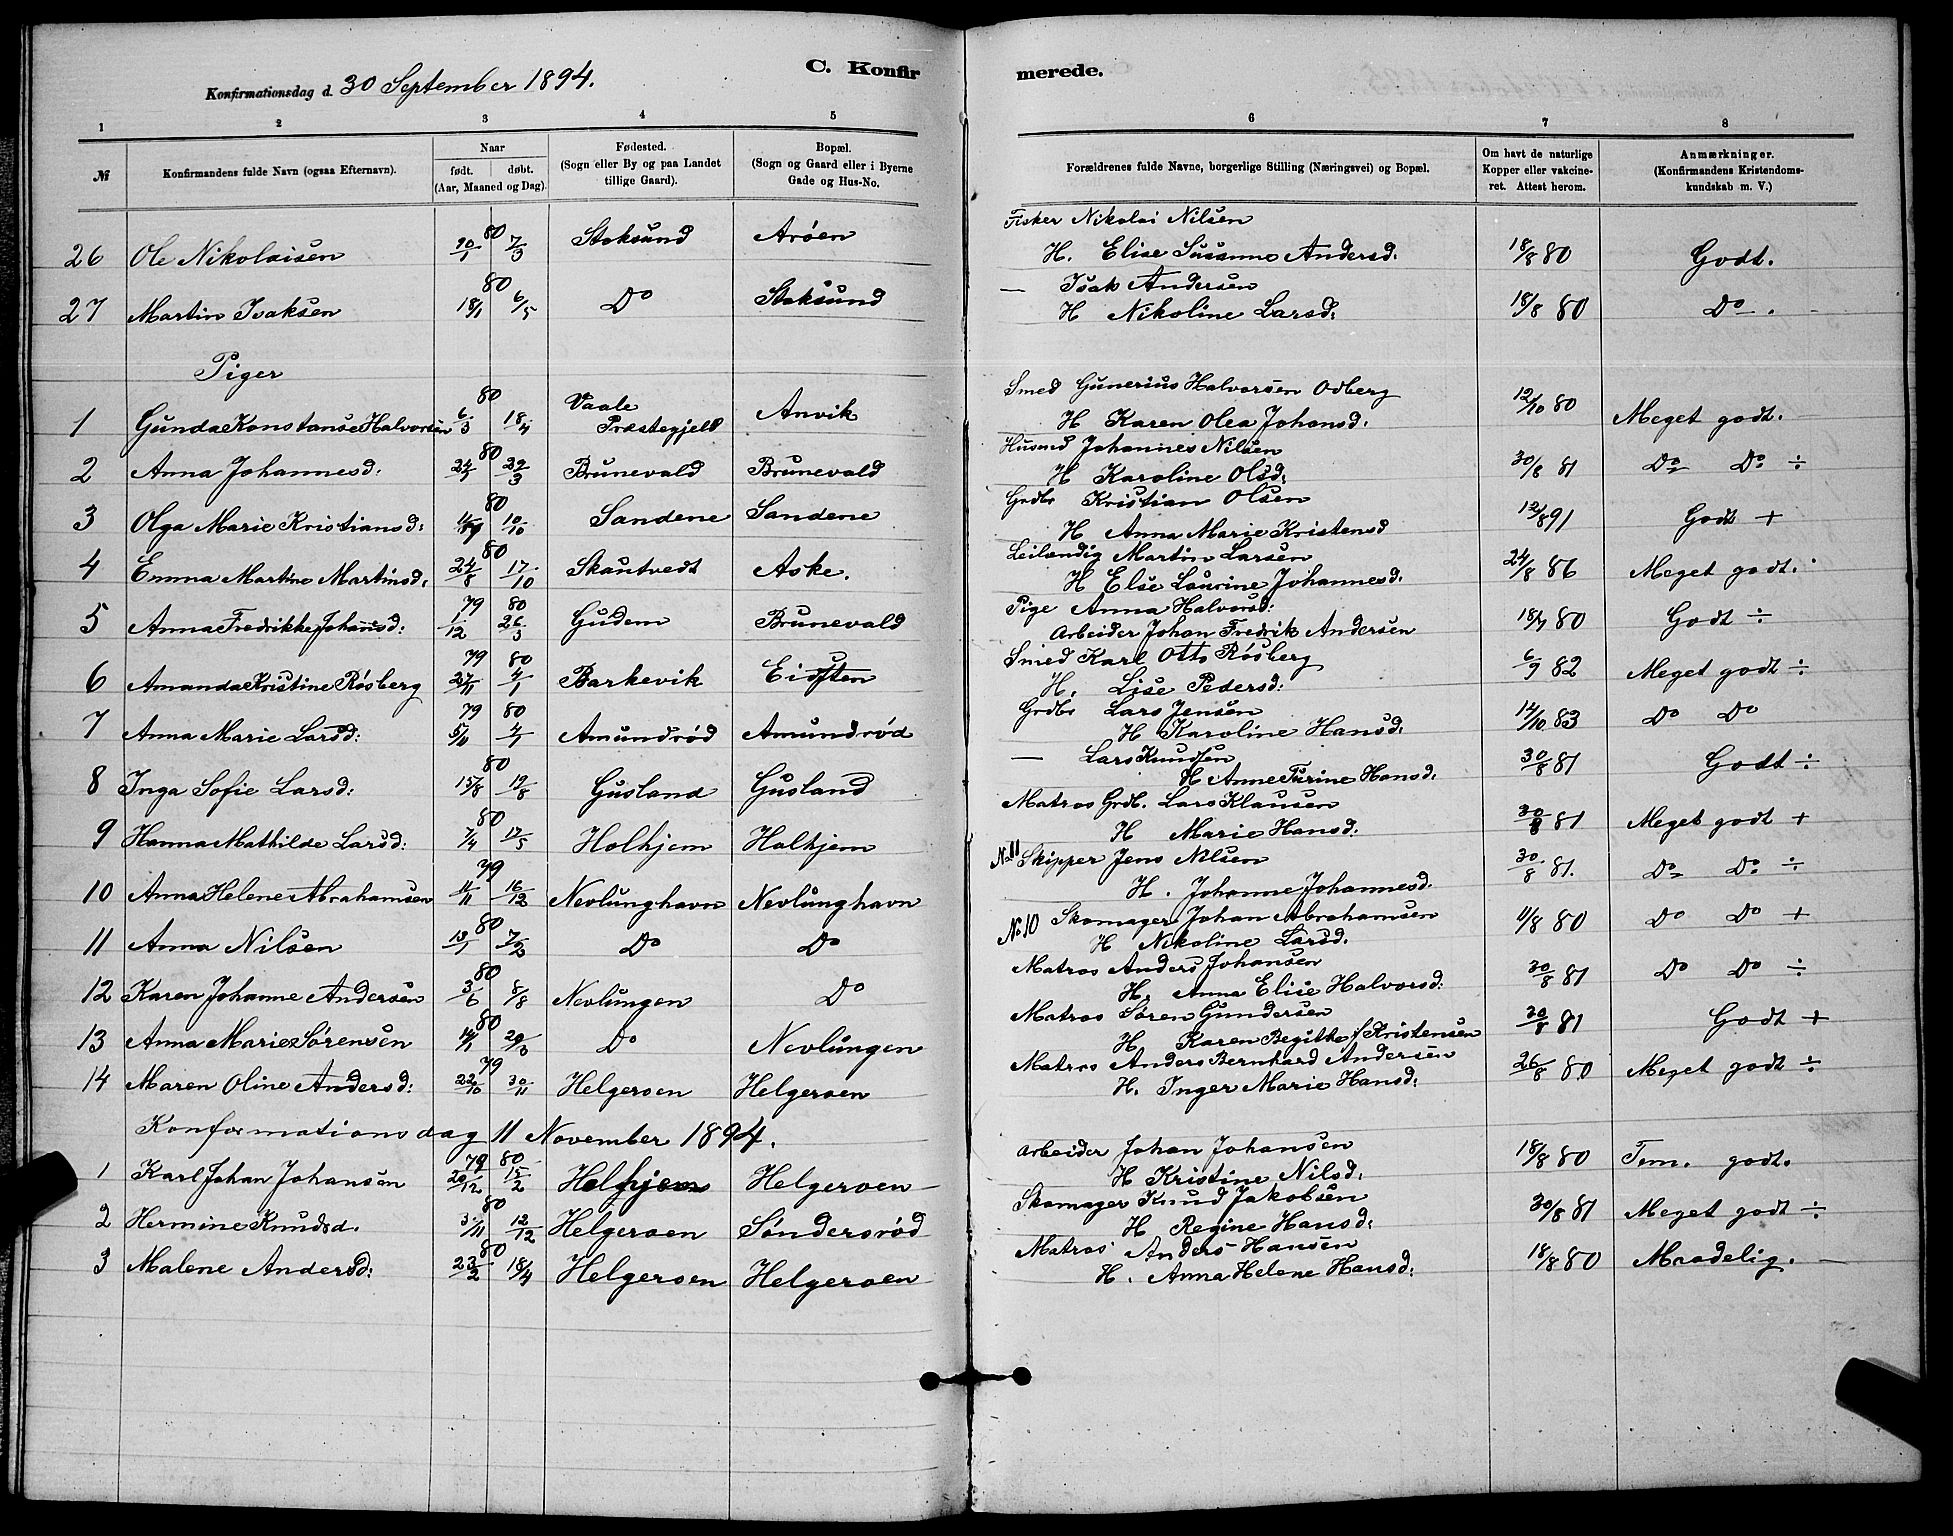 C. Konfir
merede.
Konfirmationsdag d. 30 September 1894.
1 2 3 4 5 6 7 8
№
Konfirmandens fulde Navn (ogsaa Efternavn).
Naar
født. døbt.
(Aar, Maaned og Dag).
Fødested.
(Sogn eller By og paa Landet
tillige Gaard).
Bopæl.
(Sogn og Gaard eller i Byerne
Gade og Hus-No.
Forældrenes fulde Navne, borgerlige Stilling (Næringsvei) og Bopæl.
Om havt de naturlige
Kopper eller vakcine-
ret. Attest herom.
Anmærkninger.
(Konfirmandens Kristendoms-
kundskab m. V.)
26 Ole Nikolaisen 80 20/1 7/3 Stoksund Arøen Fisker Nikolai Nilsen
H. Elise Susanne Andersd: 18/8 80 Godt.
27 Martin Isaksen 80 18/1 6/5 Do Stoksund — Isak Andersen
H Nikoline Larsd: 18/8 80 Do.
Piger
1 Gunda Konstanse Halvorsen 80 6/3 18/4 Vaale Præstegjeld Anvik Smed Gunerius Halvorsen Odberg
H Karen Olea Johansd. 12/10 80 Meget godt.
2 Anna Johannesd: 80 29/3 Brunevald Brunevald Husmd Johannes Nilsen
H Karoline Olsd: 30/8 81 Do Do ÷
3 Olga Marie Kristiansd: 80 10/10 Sandene Sandene Grdbr Kristian Olsen
H Anna Marie Kristensd 12/8 91 Godt +
4 Emma Martine Martinsd. 80 24/8 17/10 Skautvedt Aske. Leilændig Martin Larsen
H Else Laurine Johannesd. 24/8 86 Meget godt.
5 Anna Fredrikke Johansd: 79 1/12 80 26/3 Gudem Brunevald Pige Anna Halvorsd:
Arbeider Johan Fredrik Andersen 18/9 80 Godt ÷
6 Amanda Kristine Røsberg 79 27/11 80 4/1 Barkevik Eidsten Smed Karl Otto Røsberg
H. Lise Pedersd: 6/9 82 Meget godt ÷
7 Anna Marie Larsd: 79 80 4/1 Amundrød Amundrød Grdbr Lars Jensen
H Karoline Hansd: 14/10 83 Do Do
8 Inga Sofie Larsd: 80 Gusland Gusland — Lars Knudsen
H Anne Turine Hansd: 30/8 81 Godt ÷
9 Hanna Mathilde Larsd: 80 7/4 17/5 Holhjem Halhjem Matros Grdb. Lars Klausen
H Marie Hansd: 30/8 81 Meget godt +
10 Anna Helene Abrahamsen 79 11/11 16/12 Nevlunghavn Nevlunghavn No 11 Skipper Jens Nilsen
H. Johanne Johannesd. 30/8 81. Do Do ÷
11 Anna Nilsen 80 13/1 7/2 Do Do No 10 Skomager Johan Abrahamsen
H Nikoline Larsd. 11/8 80 Do Do +
12 Karen Johanne Andersen 80 3/6 8/8 Nevlungen Do Matros Anders Johansen
H. Anna Elise Halvorsd: 30/8 81 Do Do ÷
13 Anna Marie Sørensen 80 14/1 29/3 Do Nevlungen Matros Søren Gundersen
H Karen Begitte f Kristensen 30/8 81 Godt +
14 Maren Oline Andersd: 79 22/10 30/11 Helgeroen Helgeroen Matros Anders Bernhard Andersen
H. Inger Marie Hansd: 26/8 80 Meget godt ÷
Konformationsdag 11 November 1894.
1 Karl Johan Johansen 79 20/12 80 15/2 Helgeroen Arbeider Johan Johansen
H Kristine Nilsd. 18/8 80 Tem. godt.
2 Hermine Knudsd. 80 12/12 Helgeroen Søndersrød Skomager Knud Jakobsen
H Regine Hansd: 30/8 81 Meget godt ÷
3 Malene Andersd: 80 23/2 18/4 Helgeroen Helgeroen Matros Anders Hansen
H. Anna Helene Hansd: 18/8 80 Maadelig. —